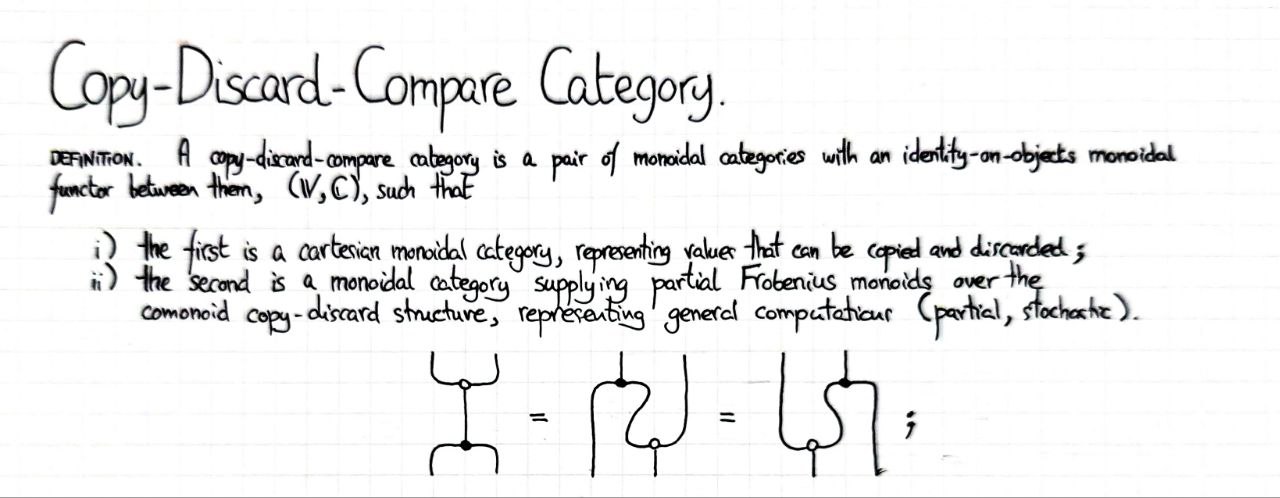 Copy-Discard-Compare Category.
DEFINITION. A copy-discard-compare category is a pair of monoidal categories with an identity-on-objects monoidal
functor between them, (𝕍,ℂ), such that
i) the first is a cartesian monoidal category, representing values that can be copied and discarded;
ii) the second is a monoidal category supplying partial Frobenius monoids over the
comonoid copy-discard structure, representing general computations (partial, stochastic).
= = ;